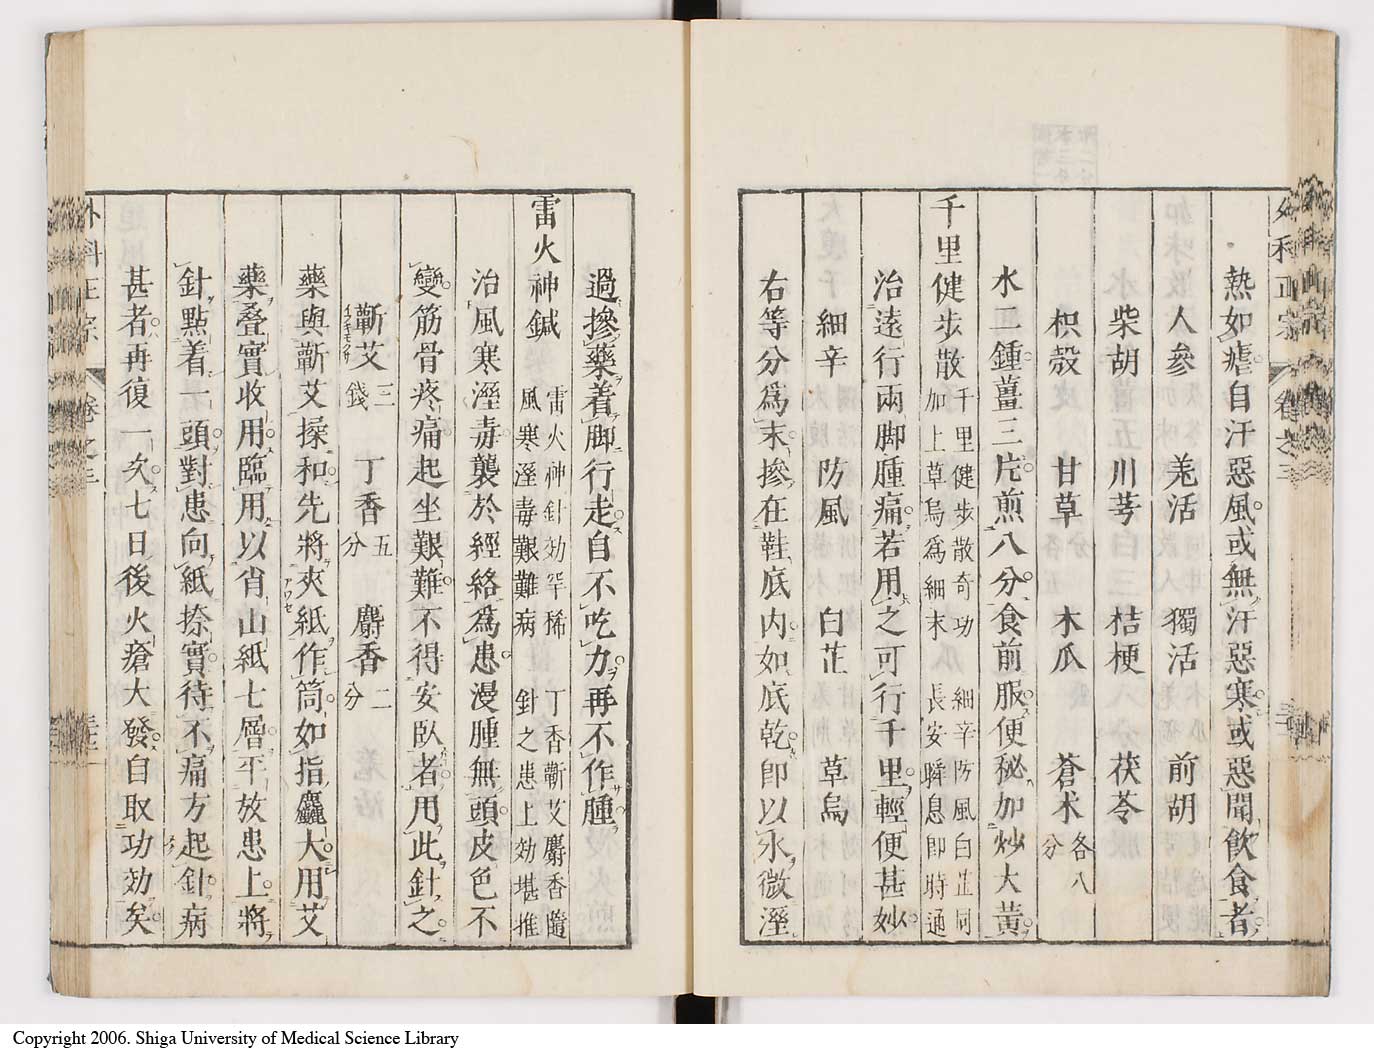 熱如瘧自汗惡風或無汗惡寒或惡聞飲食者
人參 羌活 獨活 前胡
柴胡 川芎 桔梗 茯苓
枳殼 甘草 各五分 木瓜 蒼术 各八分
水二鍾薑三片煎八分食前服便秘加炒大黃
千里健步散 千里健步散奇功 細辛防風白芷同
加上草烏爲細末 長安瞬息即時通
治遠行兩脚腫痛若用之可行千里輕便甚妙
細辛 防風 白芷 草烏
右等分爲末摻在鞋底内如底乾即以水微溼
過摻藥着脚行走自不吃力再不作腫
雷火神鍼 雷火神針効罕稀 丁香蘄艾麝香隨
風寒溼毒艱難病 針之患上効堪推
治風寒溼毒襲於經絡爲患漫腫無頭皮色不
變筋骨疼痛起坐艱難不得安臥者用此針之
蘄艾 三錢 丁香 五分 麝香 二分
藥與蘄艾揉和先將夾紙作筒如指麤大用艾
藥疊實收用臨用以肖山紙七層平放患上將
針點着一頭對患向紙捺實待不痛方起針病
甚者再復一次七日後火瘡大發自取功効矣
外科正宗 卷之三